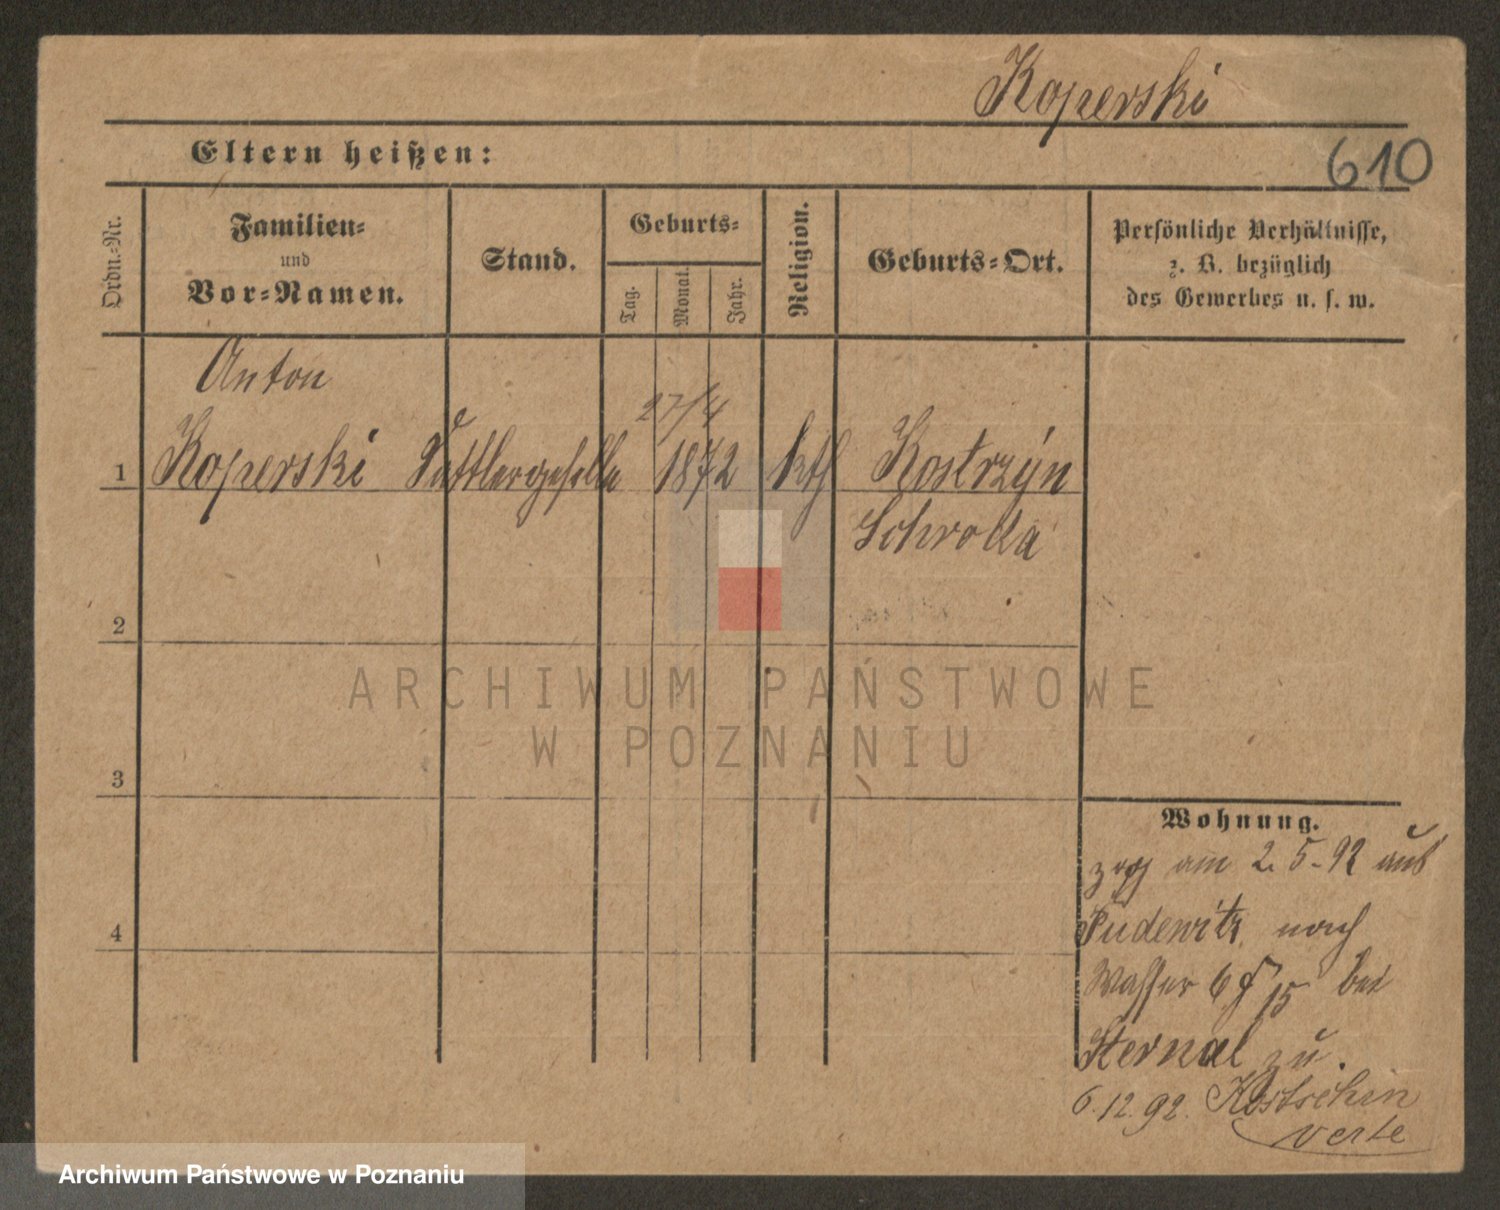 Koperski
610
Eltern heißen:
Ordn.-Nr.
Familien-
und
Vor-Namen.
Stand.
Geburts-
Tag.
Monat.
Jahr.
Religion.
Geburts-Ort.
Persönliche Verhältnisse,
z. B. bezüglich
des Gewerbes u. s. w.
Anton
27/4
1 Koperski Sattlergeselle 1872 kth Kostrzyn
Schroda
2
3
4
Wohnung.
zog am 2.5-92 aus
Pudewitz nach
Wasser 15 bei
Sternal zu.
6.12.92. Kostschin
verte
ARCHIWUM PAŃSTWOWE
W POZNANIU
Archiwum Państwowe w Poznaniu